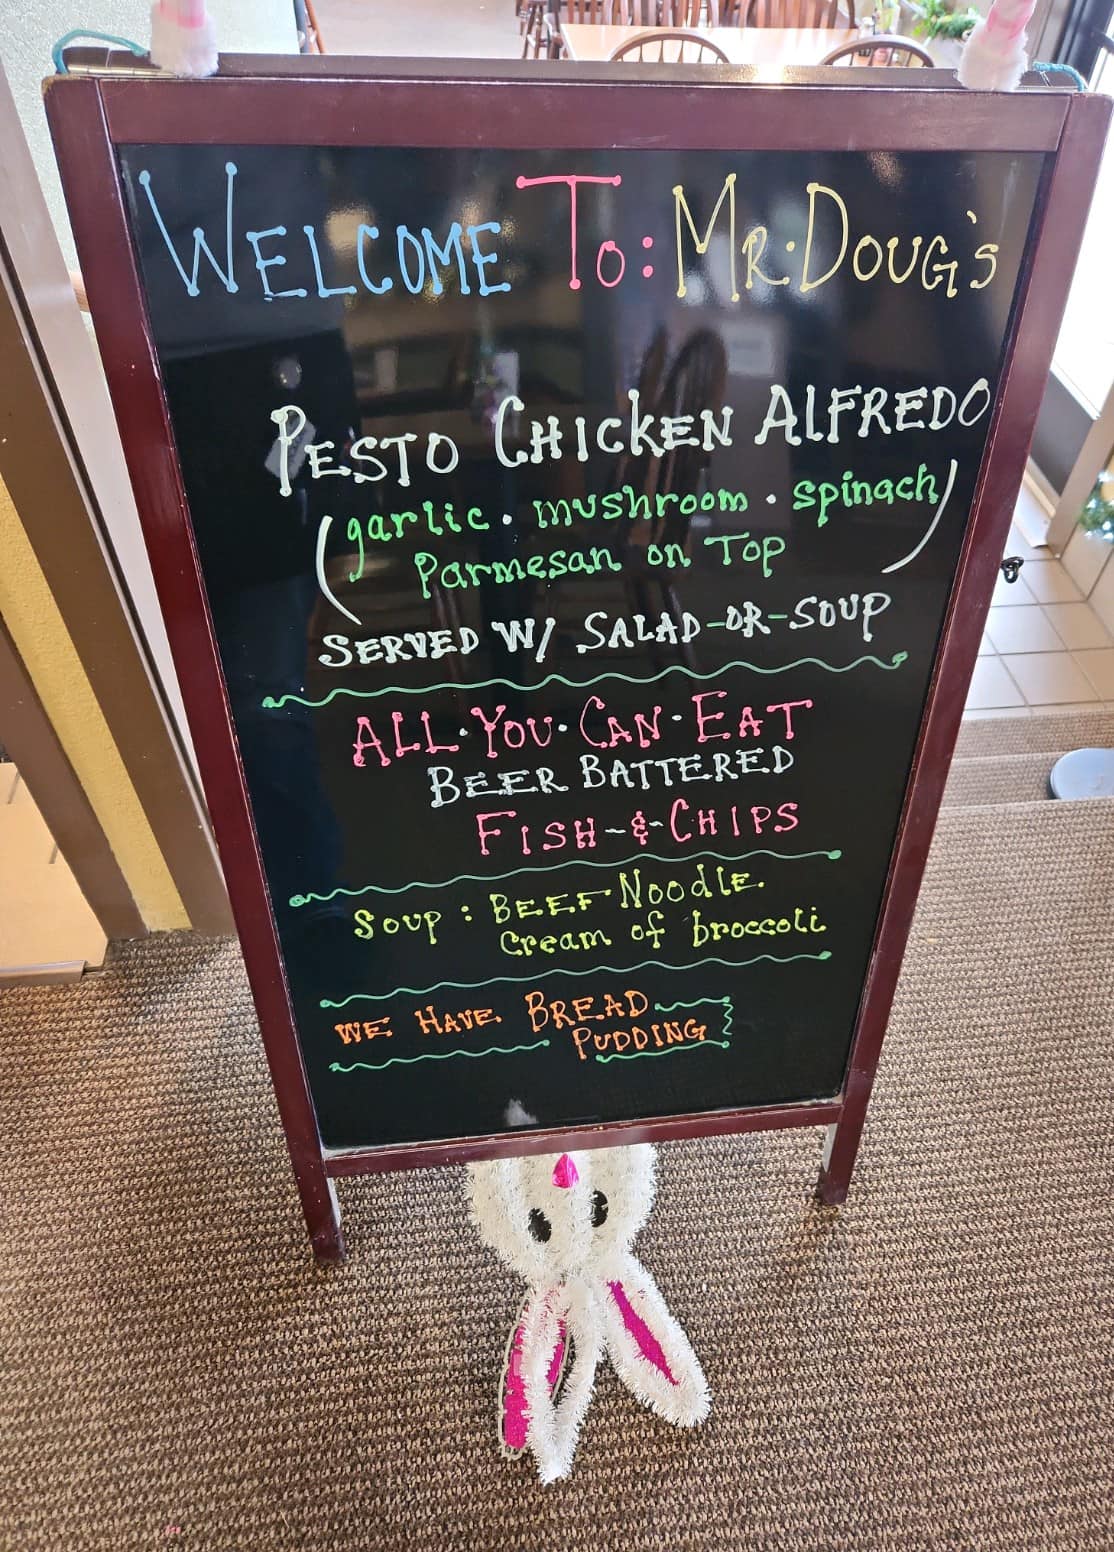 WELCOME TO: MR. DOUG'S
PESTO CHICKEN ALFREDO
(garlic · mushroom · spinach
Parmesan on Top)
SERVED W/ SALAD-OR-SOUP
ALL·YOU·CAN·EAT
BEER BATTERED
FISH-&-CHIPS
Soup: BEEF Noodle.
Cream of broccoli
WE HAVE BREAD
PUDDING